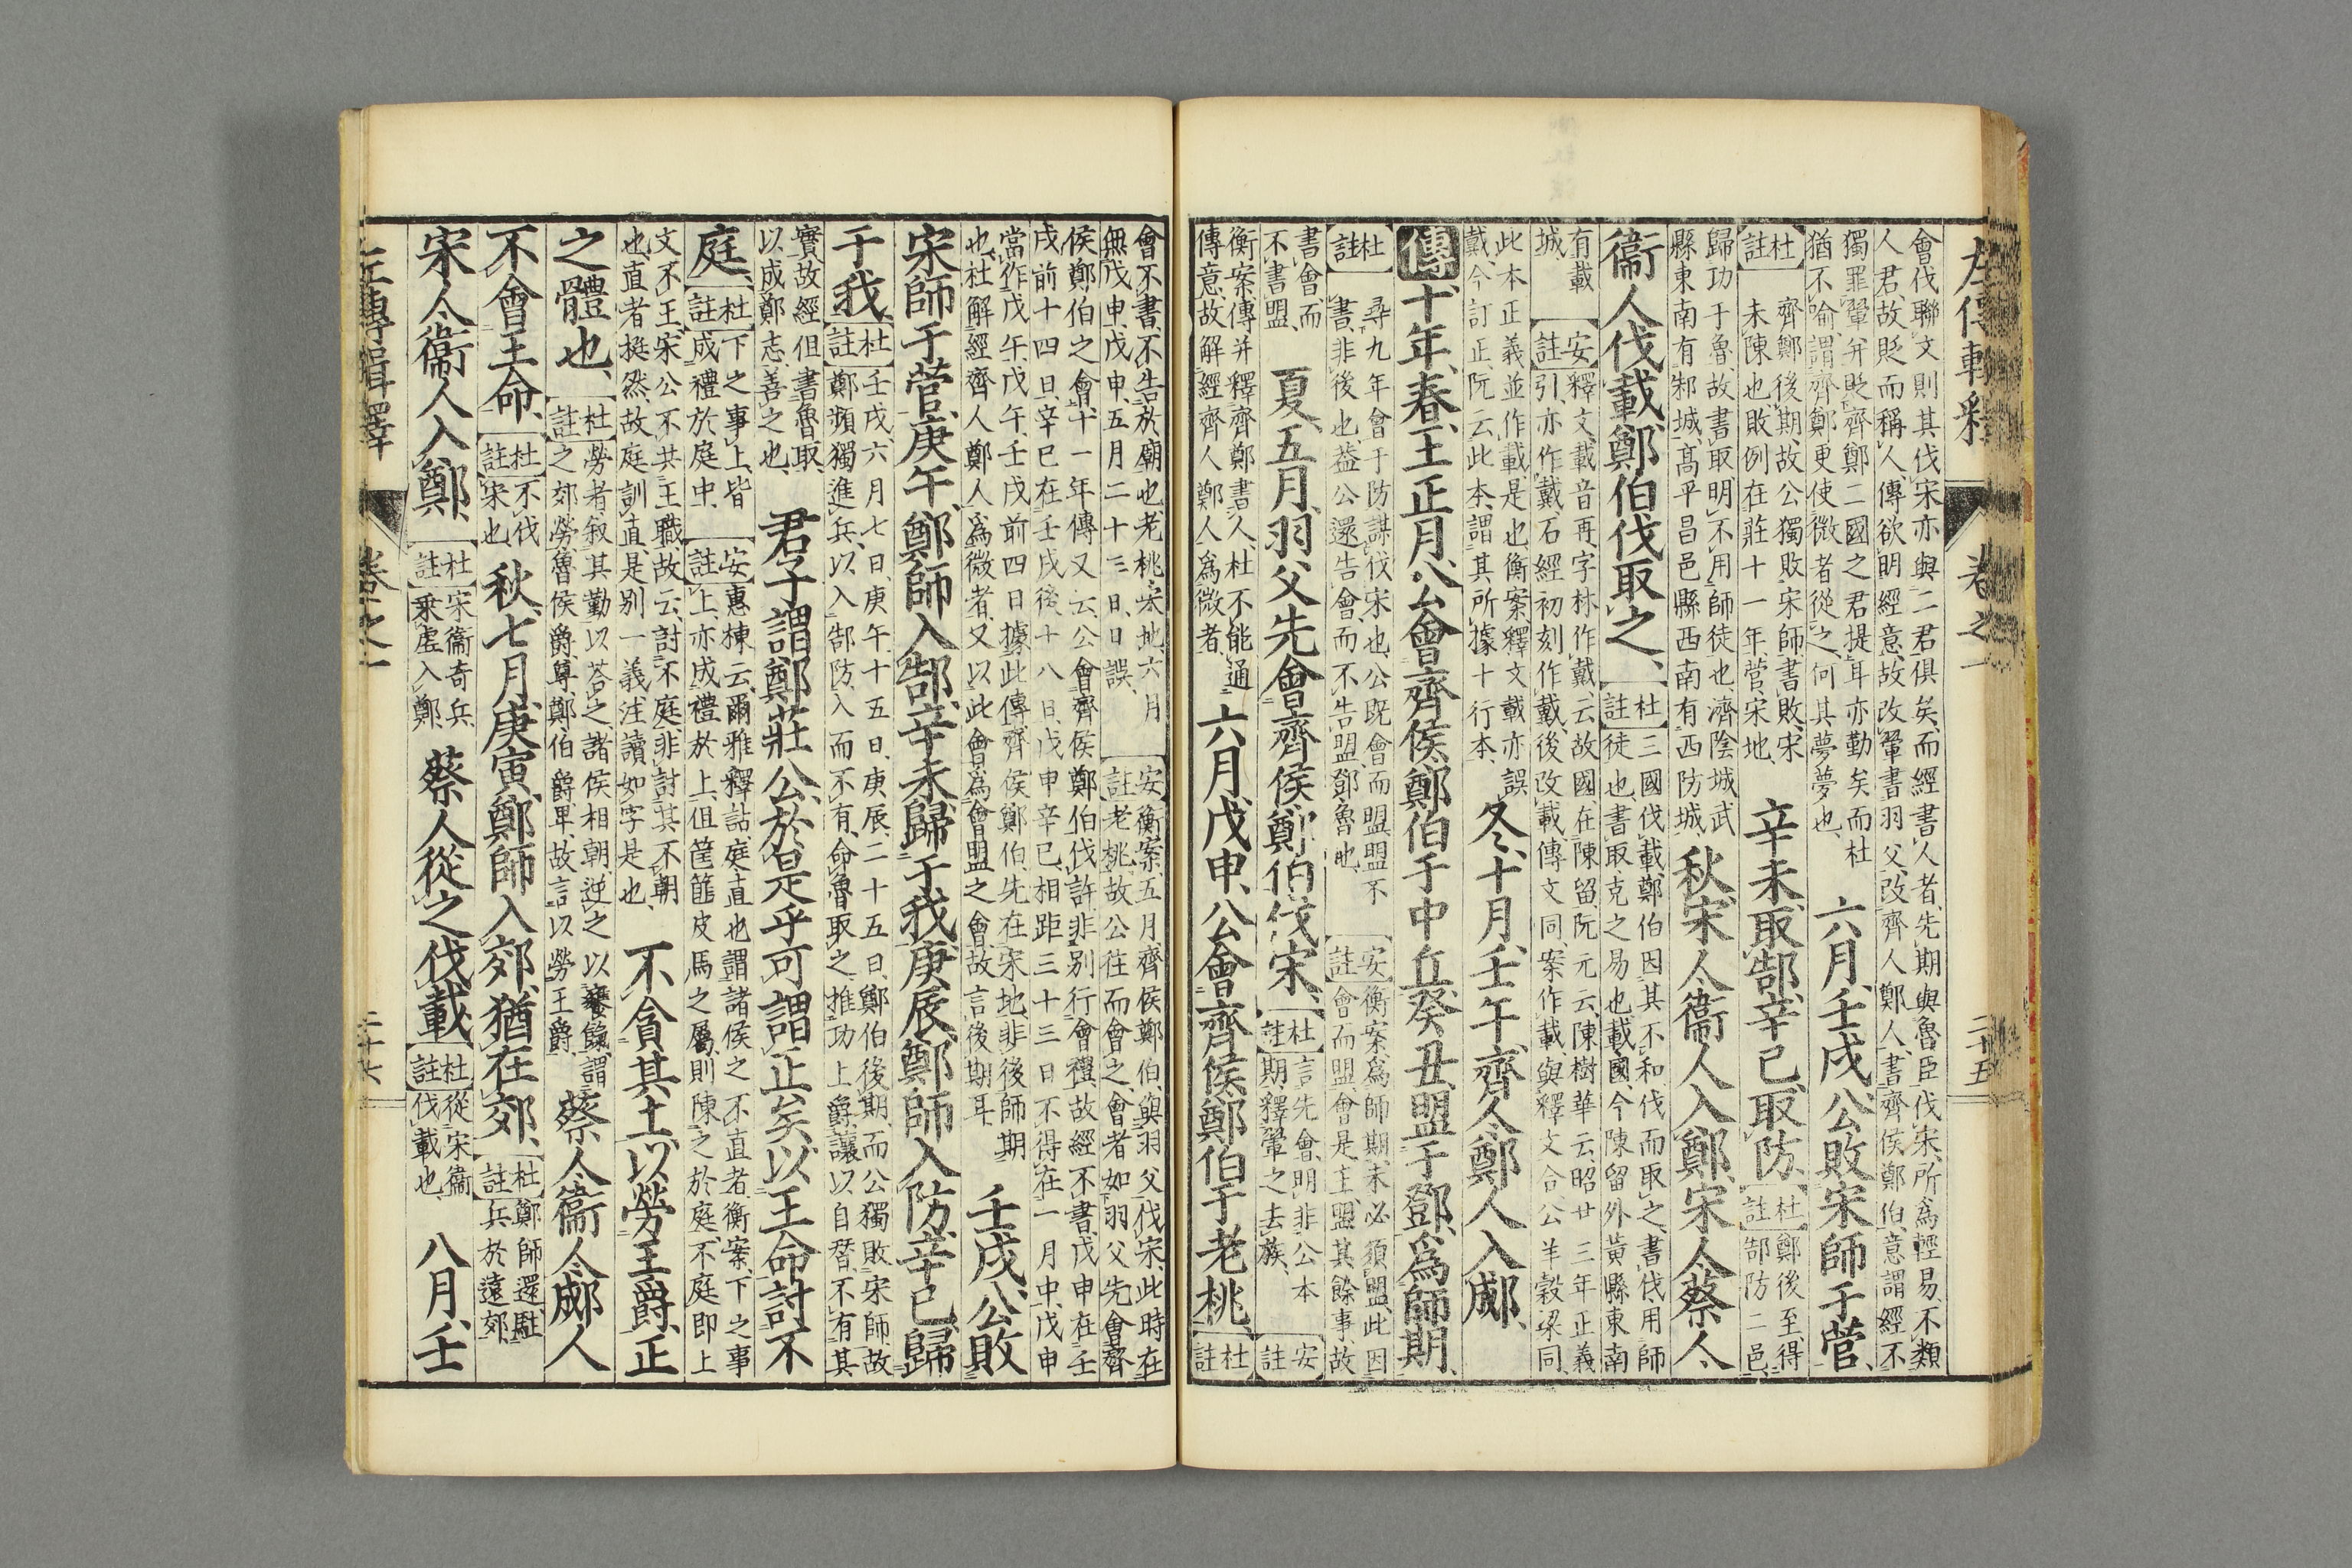 左傳輯釋 卷之一 二十五
會伐聯文則其伐宋亦與二君俱矣而經書人者先期與魯臣伐宋所爲輕易不類
人君故貶而稱人傳欲明經意故改翬書羽父改齊人鄭人書齊侯鄭伯意謂經不
獨罪翬并貶齊鄭二國之君提耳亦勤矣而杜
猶不喻謂齊鄭更使微者從之何其夢夢也
六月壬戌公敗宋師于菅
杜註 齊鄭後期故公獨敗宋師書敗宋
未陳也敗例在莊十一年菅宋地
辛未取郜辛巳取防
杜註 鄭後至得
郜防二邑
歸功于魯故書取明不用師徒也濟陰城武
縣東南有郜城高平昌邑縣西南有西防城
秋宋人衞人入鄭宋人蔡人
衞人伐載鄭伯伐取之
杜註 三國伐載鄭伯因其不和伐而取之書伐用師
徒也書取克之易也載國今陳留外黃縣東南
有載
城
安註 釋文載音再字林作戴云故國在陳留阮元云陳樹華云昭廿三年正義
引亦作戴石經初刻作戴後改載傳文同案作載與釋文合公羊穀梁同
此本正義並作載是也衡案釋文載亦誤
戴今訂正阮云此本謂其所據十行本
冬十月壬午齊人鄭人入郕
傳十年春王正月公會齊侯鄭伯于中丘癸丑盟于鄧爲師期
杜註 尋九年會于防謀伐宋也公既會而盟盟不
書非後也蓋公還告會而不告盟鄧魯地
安註 衡案爲師期未必須盟此因
會而盟會是主盟其餘事故
書會而
不書盟
夏五月羽父先會齊侯鄭伯伐宋
杜註 言先會明非公本
期釋翬之去族
安註
衡案傳并釋齊鄭書人杜不能通
傳意故解經齊人鄭人爲微者
六月戊申公會齊侯鄭伯于老桃
杜註
會不書不告於廟也老桃宋地六月
無戊申戊申五月二十三日日誤
安註 衡案五月齊侯鄭伯與羽父伐宋此時在
老桃故公往而會之會者如羽父先會齊
侯鄭伯之會十一年傳又云公會齊侯鄭伯伐許非别行會禮故經不書戊申在壬
戌前十四日辛巳在壬戌後十八日戊申辛巳相距三十三日不得在一月中戊申
當作戊午戊午壬戌前四日據此傳齊侯鄭伯先在宋地非後師期
也杜解經齊人鄭人爲微者又以此會爲會盟之會故言後期耳
壬戌公敗
宋師于菅庚午鄭師入郜辛未歸于我庚辰鄭師入防辛巳歸
于我
杜註 壬戌六月七日庚午十五日庚辰二十五日鄭伯後期而公獨敗宋師故
鄭頻獨進兵以入郜防入而不有命魯取之推功上爵讓以自替不有其
實故經但書魯取
以成鄭志善之也
君子謂鄭莊公於是乎可謂正矣以王命討不
庭
杜註 下之事上皆
成禮於庭中
安註 惠棟云爾雅釋詁庭直也謂諸侯之不直者衡案下之事
上亦成禮於上但筐篚皮馬之屬則陳之於庭不庭即上
文不王宋公不共王職故云討不庭非討其不朝
也直者挺然故庭訓直是别一義注讀如字是也
不貪其土以勞王爵正
之體也
杜註 勞者叙其勤以荅之諸侯相朝逆之以饔餼謂
之郊勞魯侯爵尊鄭伯爵卑故言以勞王爵
蔡人衞人郕人
不會王命
杜註 不伐
宋也
秋七月庚寅鄭師入郊猶在郊
杜註 鄭師還駐
兵於遠郊
宋人衞人入鄭
杜註 宋衞奇兵
乘虚入鄭
蔡人從之伐載
杜註 從宋衞
伐載也
八月壬
左傳輯釋 卷之一 二十六